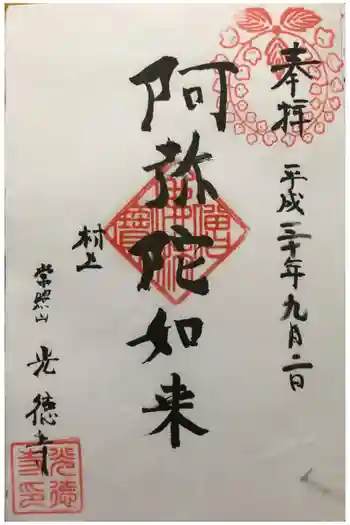 奉拝
平成三十年九月二日
阿弥陀如来
村上
常照山
光徳寺
光徳
寺印